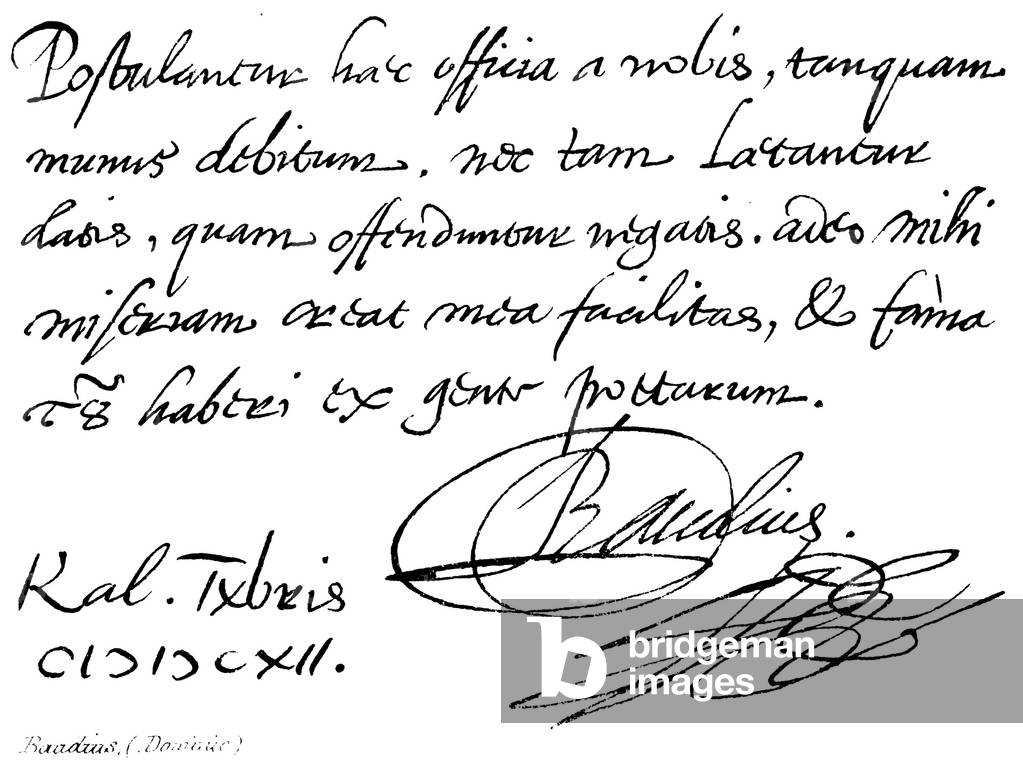 Postulantur hæc officia a nobis, tanquam
munus debitum. nec tam Lætantur
datis, quam offenduntur negatis. adeo mihi
miseriam creat mea facilitas, & fama
haberi ex gente poetarum.
Baudius.
Kal. IXbris
CIƆ IƆ CXII.
bridgeman
images
Baudius, (Dominic)